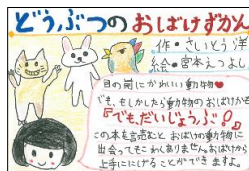 どうぶつの おばけずかん
作・さいとう洋
絵・宮本えつよし
目の前にかわいい動物❤
でも、もしかしたら動物のおばけかも
『でも、だいじょうぶ!』
この本を読むと おばけの動物に
出会ってもこわくありません。おばけから
上手ににげることができますよ。